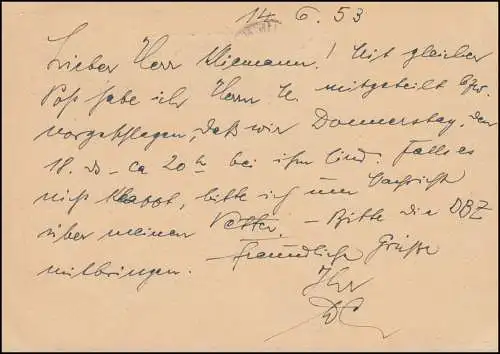 14. 6. 53
Lieber Herr Kliemann! Mit gleicher
Post habe ich Herrn K. mitgeteilt bzw.
vorgeschlagen, daß wir Donnerstag, den
18. ds - ca 20 h bei ihm sind. Falls es
nicht klappt, bitte ich um Nachricht
über meinen Vetter. - Bitte die DBZ
mitbringen. Freundliche Grüße
Ihr